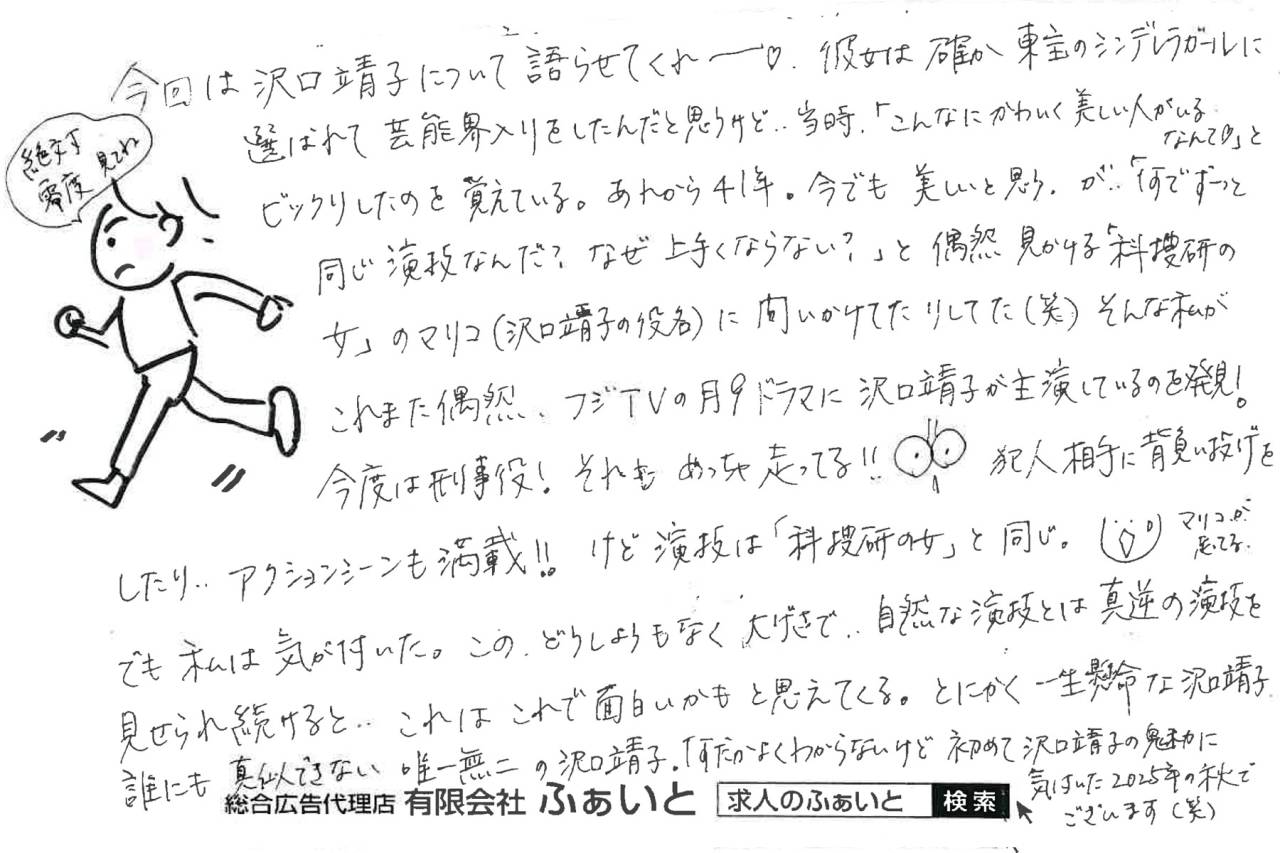 今回は沢口靖子について語らせてくれー♡. 彼女は確か東宝のシンデレラガールに
選ばれて芸能界入りをしたんだと思うけど‥当時、「こんなにかわいく美しい人がいる
なんて♡」と
ビックリしたのを覚えている。あれから41年。今でも美しいと思う. が‥「何でずーっと
同じ演技なんだ？なぜ上手くならない？」と偶然見かける「科捜研の
女」のマリコ(沢口靖子の役名)に問いかけてたりしてた(笑) そんな私が
これまた偶然、フジTVの月9ドラマに沢口靖子が主演しているのを発見！
今度は刑事役！それもめっちゃ走ってる!! 犯人相手に背負い投げを
したり‥アクションシーンも満載!! けど演技は「科捜研の女」と同じ。
マリコが
走ってる
でも私は気が付いた。この、どうしようもなく大げさで‥自然な演技とは真逆の演技を
見せられ続けると‥これはこれで面白いかもと思えてくる。とにかく一生懸命な沢口靖子
誰にも真似できない唯一無二の沢口靖子。何だかよくわからないけど初めて沢口靖子の魅力に
気付いた2025年の秋で
ございます(笑)
絶対
零度
見てね
総合広告代理店 有限会社 ふぁいと 求人のふぁいと 検索